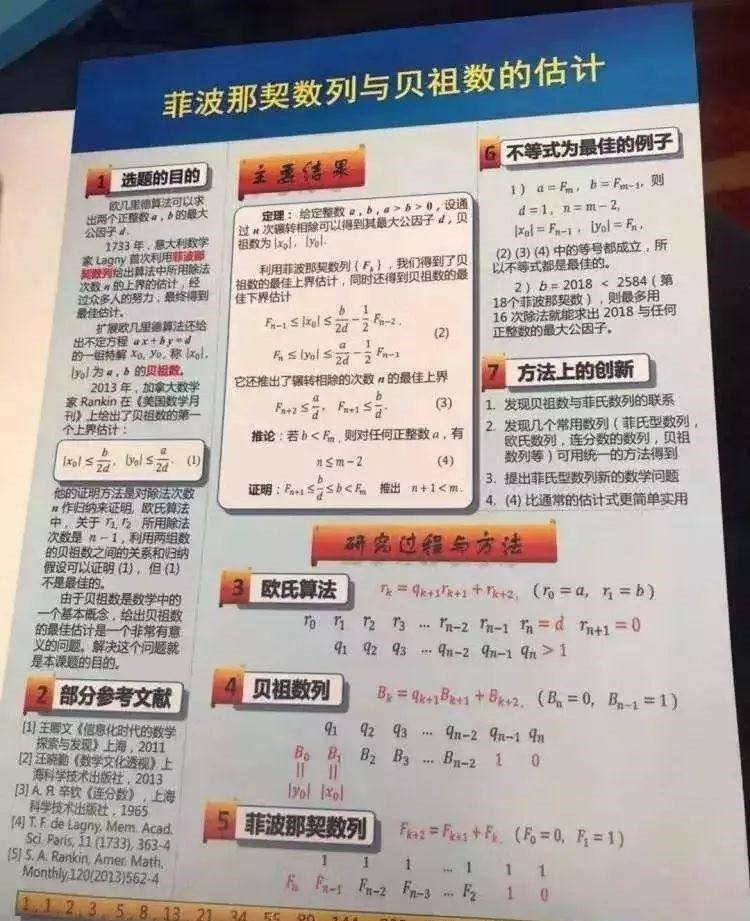 菲波那契数列与贝祖数的估计
1 选题的目的
欧几里德算法可以求
出两个正整数 a , b 的最大
公因子 d .
1733 年，意大利数学
家 Lagny 首次利用菲波那
契数列给出算法中所用除法
次数 n 的上界的估计，经
过众多人的努力，最终得到
最佳估计。
扩展欧几里德算法还给
出不定方程 ax+by=d
的一组特解 x₀, y₀, 称 |x₀|,
|y₀| 为 a , b 的贝祖数。
2013 年，加拿大数学
家 Rankin 在《美国数学月
刊》上给出了贝祖数的第一
个上界估计：
|x₀| ≤ b/2d, |y₀| ≤ a/2d. (1)
他的证明方法是对除法次数
n 作归纳来证明, 欧氏算法
中，关于 r₁, r₂ 所用除法
次数是 n−1，利用两组数
的贝祖数之间的关系和归纳
假设可以证明 (1)，但 (1)
不是最佳的。
由于贝祖数是数学中的
一个基本概念，给出贝祖数
的最佳估计是一个非常有意
义的问题。解决这个问题就
是本课题的目的。
2 部分参考文献
[1] 王卿文《信息化时代的数学
探索与发现》上海，2011
[2] 汪晓勤《数学文化透视》上
海科学技术出版社，2013
[3] А. Я. 辛钦《连分数》，上海
科学技术出版社，1965
[4] T. F. de Lagny, Mem. Acad.
Sci. Paris, 11 (1733), 363-4
[5] S. A. Rankin, Amer. Math.
Monthly,120(2013)562-4
主要结果
定理：给定整数 a , b , a > b > 0 , 设通
过 n 次辗转相除可以得到其最大公因子 d , 贝
祖数为 |x₀|, |y₀|.
利用菲波那契数列 {Fₖ}，我们得到了贝
祖数的最佳上界估计，同时还得到贝祖数的最
佳下界估计
Fₙ₋₁ ≤ |x₀| ≤ b/d − 1/2 Fₙ₋₂,
(2)
Fₙ ≤ |y₀| ≤ a/2d − 1/2 Fₙ₋₁
它还推出了辗转相除的次数 n 的最佳上界
Fₙ₊₂ ≤ a/d, Fₙ₊₁ ≤ b/d. (3)
推论：若 b < Fₘ, 则对任何正整数 a , 有
n ≤ m − 2 (4)
证明：Fₙ₊₁ ≤ b/d ≤ b < Fₘ 推出 n + 1 < m.
6 不等式为最佳的例子
1 ) a = Fₘ , b = Fₘ₋₁, 则
d = 1 , n = m − 2,
|x₀| = Fₙ₋₁ , |y₀| = Fₙ ,
(2) (3) (4) 中的等号都成立，所
以不等式都是最佳的。
2 ) b = 2018 < 2584 ( 第
18个菲波那契数 )，则最多用
16 次除法就能求出 2018 与任何
正整数的最大公因子。
7 方法上的创新
1. 发现贝祖数与菲氏数列的联系
2. 发现几个常用数列 ( 菲氏型数列，
欧氏数列，连分数的数列，贝祖
数列等 ) 可用统一的方法得到
3. 提出菲氏型数列新的数学问题
4. (4) 比通常的估计式更简单实用
研究过程与方法
3 欧氏算法 rₖ = qₖ₊₁rₖ₊₁ + rₖ₊₂, ( r₀ = a, r₁ = b )
r₀ r₁ r₂ r₃ … rₙ₋₂ rₙ₋₁ rₙ = d rₙ₊₁ = 0
q₁ q₂ q₃ … qₙ₋₂ qₙ₋₁ qₙ > 1
4 贝祖数列 Bₖ = qₖ₊₁Bₖ₊₁ + Bₖ₊₂, ( Bₙ = 0, Bₙ₋₁ = 1 )
q₁ q₂ q₃ … qₙ₋₂ qₙ₋₁ qₙ
B₀ B₁ B₂ B₃ … Bₙ₋₂ 1 0
|| ||
|y₀| |x₀|
5 菲波那契数列 Fₖ₊₂ = Fₖ₊₁ + Fₖ, ( F₀ = 0, F₁ = 1 )
1 1 1 … 1 1 1
Fₙ Fₙ₋₁ Fₙ₋₂ Fₙ₋₃ … F₂ 1 0
1 , 1 , 2 , 3 , 5 , 8 , 13 21 34 55 89 144